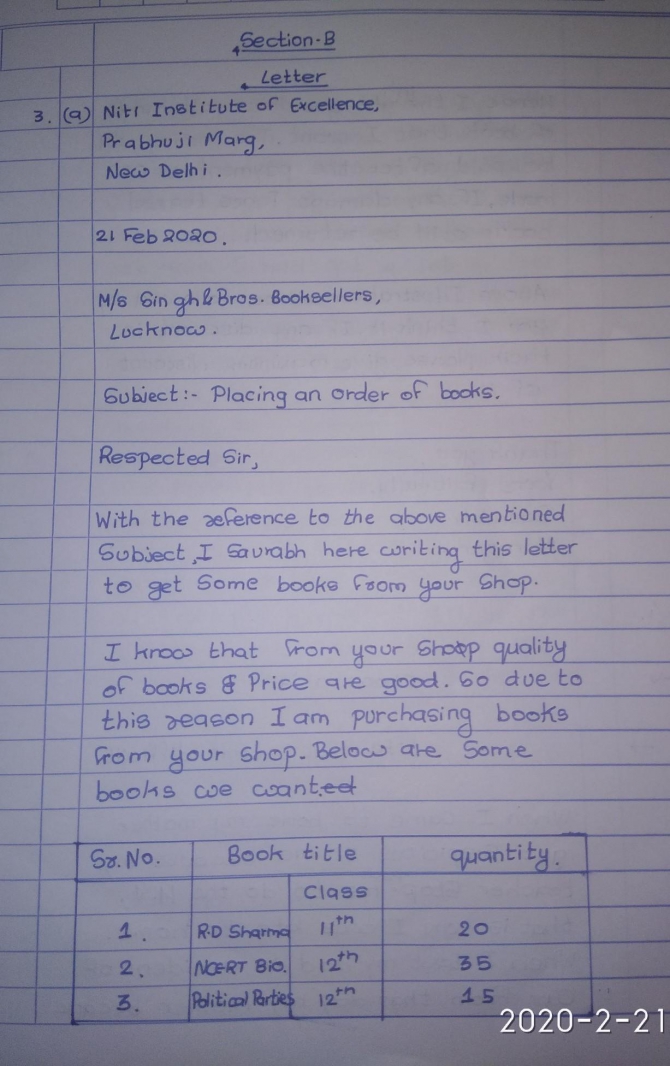 Section-B
Letter
3. (a) Niti Institute of Excellence,
Prabhuji Marg,
New Delhi.
21 Feb 2020.
M/s Singh & Bros. Booksellers,
Lucknow.
Subject:- Placing an order of books.
Respected Sir,
With the reference to the above mentioned
Subject, I Saurabh here writing this letter
to get Some books from your Shop.
I know that from your Shop quality
of books & Price are good. So due to
this reason I am purchasing books
from your shop. Below are Some
books we wanted
Sr. No. Book title quantity.
Class
1. R.D Sharma 11th 20
2. NCERT Bio. 12th 35
3. Political Parties 12th 15
2020-2-21